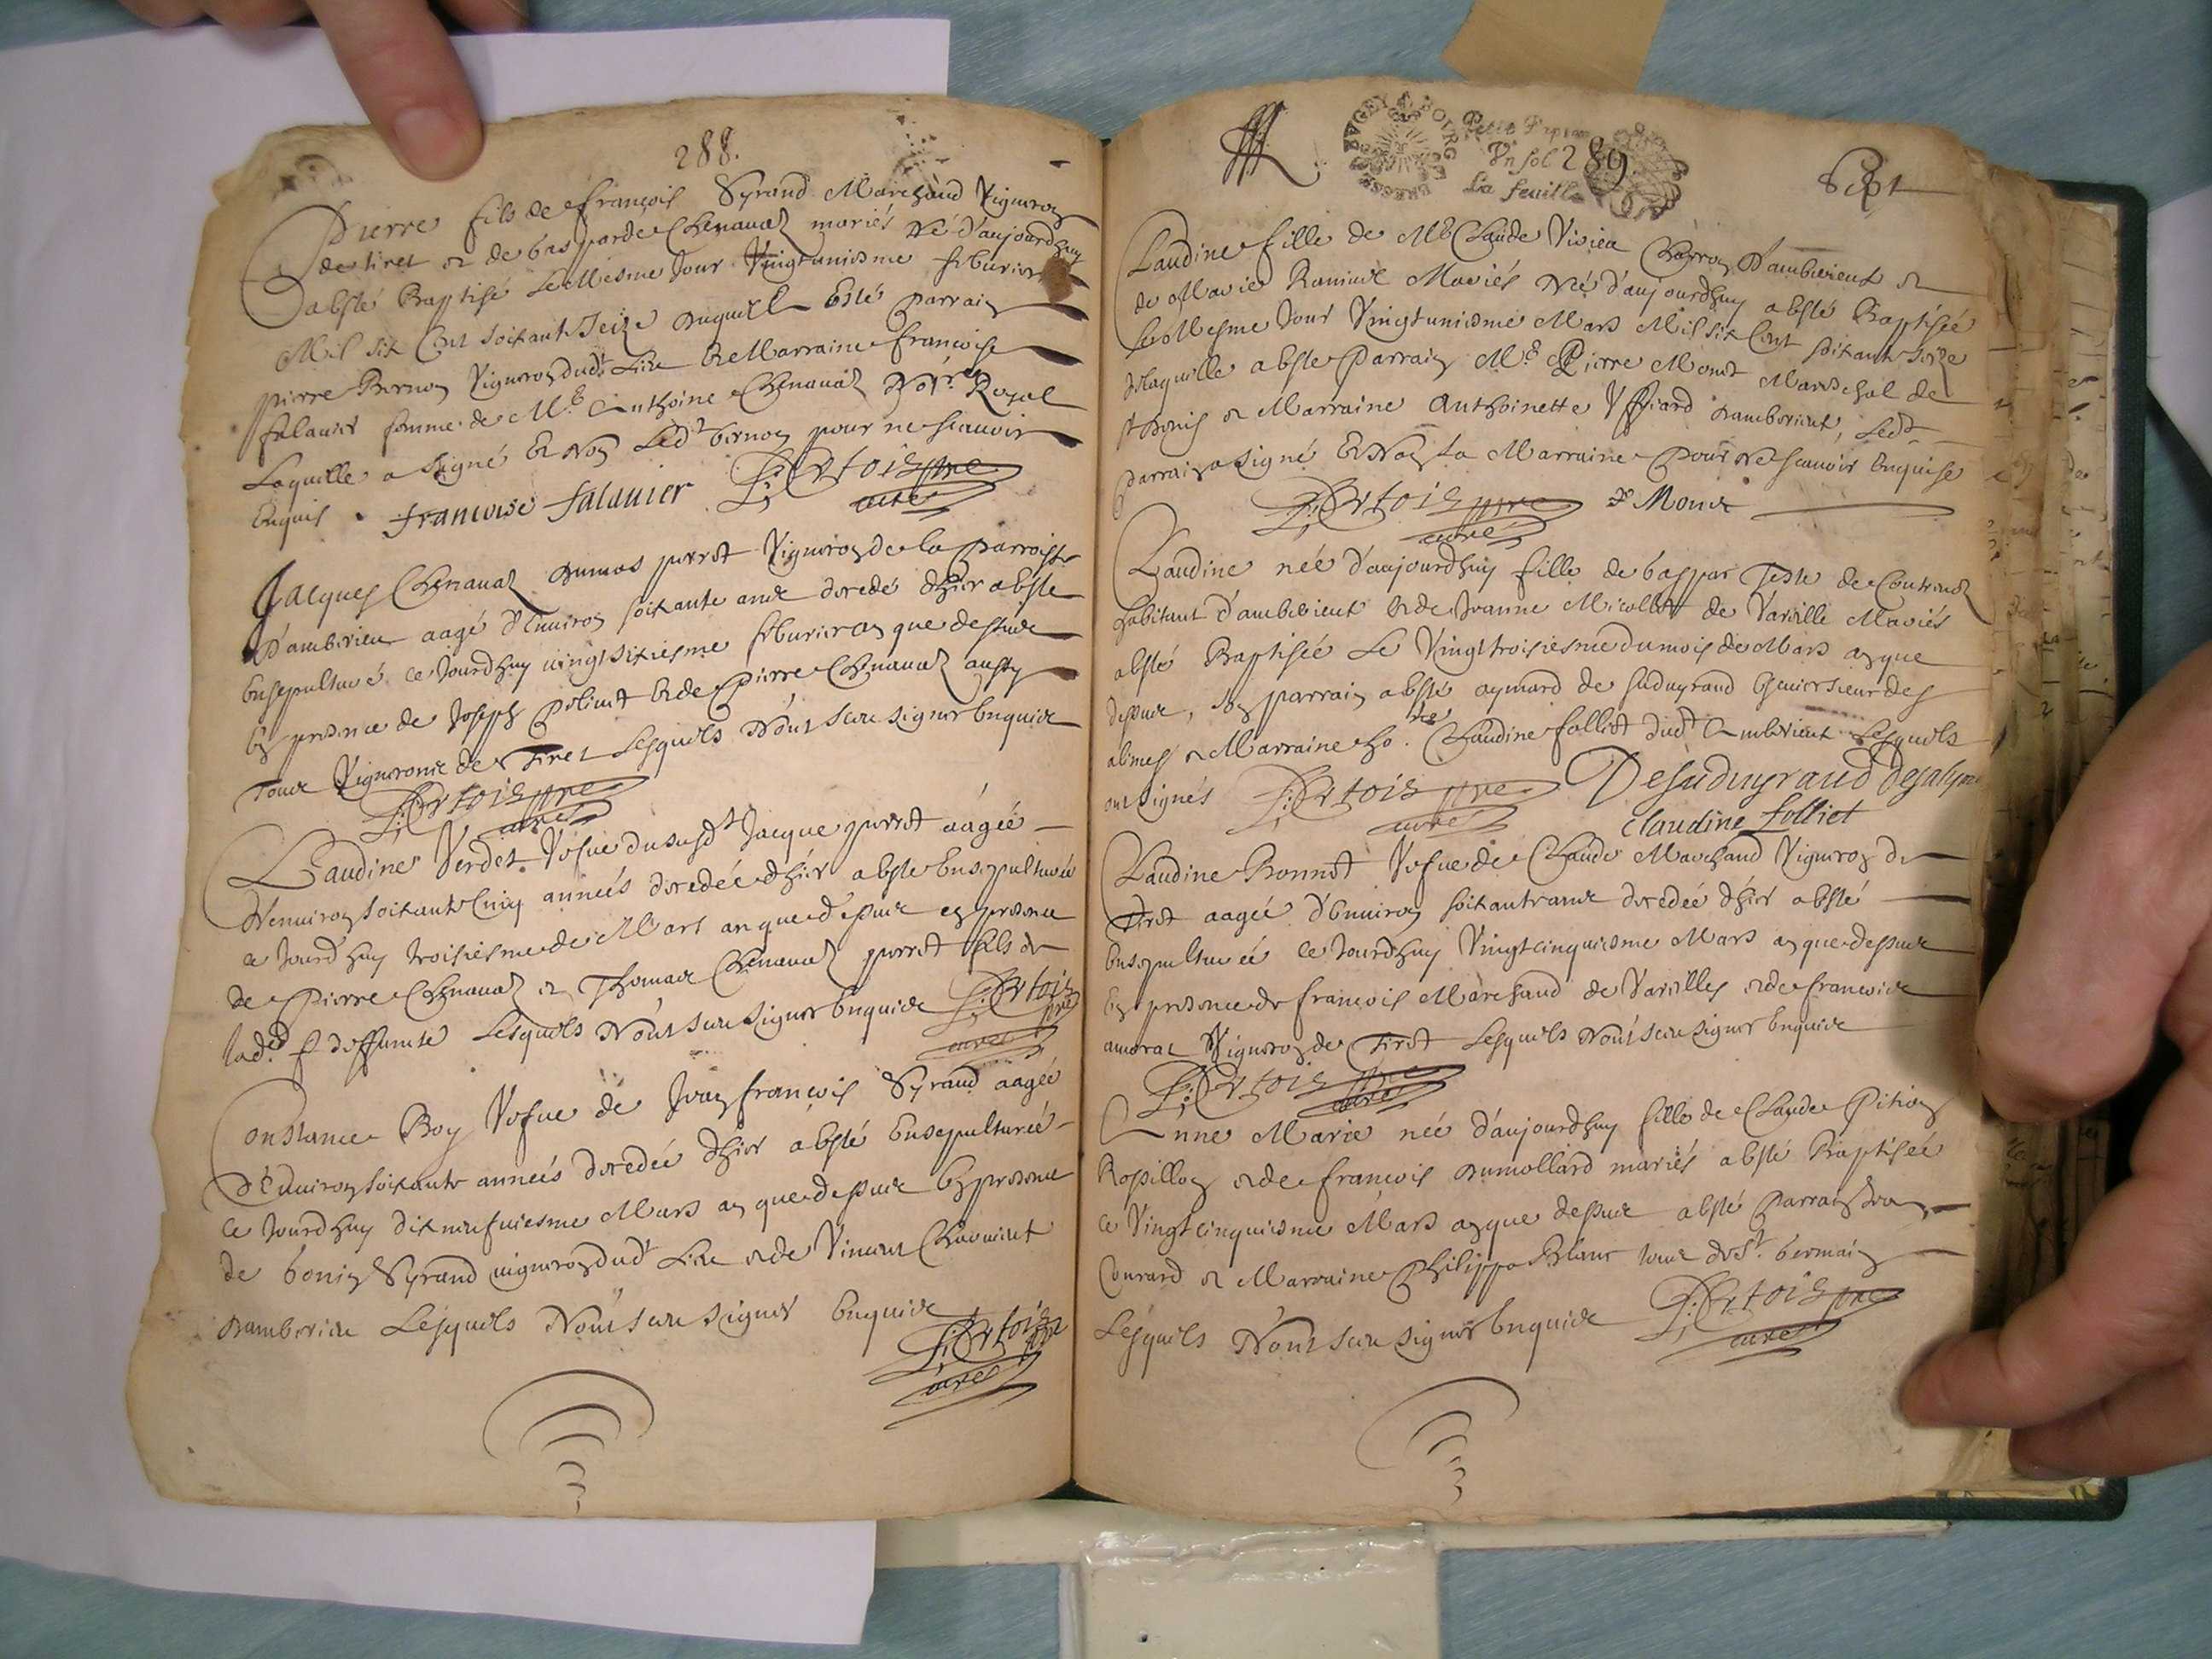 288.
Pierre fils de François Syrand Marchand Vigneron
de tiret et de gasparde Chenaual mariés Né d'aujourdhuy
a esté Baptisé Le Mesme Jour Vingtuniesme feburier
Mil six Cent soixante Seize duquel a Esté parrain
pierre Bernon Vigneron dudt Lieu et Marraine francoise
falauier femme de Mre Anthoine Chenaual Notre Royal
Laquelle a signé Et Non Ledt bernon pour ne scauoir
Enquis francoise falauier
curé
Jacques Chenaual dumas perrot Vigneron de la parroisse
D'amberieu aagé d'Enuiron soixante ans decedé d'hier a esté
Ensepulturé ce Jourdhuy vingt sixiesme feburier an que dessus
En presence de Joseph et de Pierre Chenaual aussy
Tous Vignerons de Tiret Lesquels N'ont sceu signer Enquis
curé
Claudine Verdet Vefue du susdt Jacque perrot aagée
D'enuiron soixante Cinq années decedée d'hier a esté Ensepulturée
ce Jourd'huy troisiesme de Mars an que dessus en presence
de Pierre Chenaual et Thomas Chenaual perrot fils de
lade deffunte Lesquels N'ont sceu signer Enquis
curé
Constance Boy Vefue de Jean francois Syrand aagée
d'Enuiron soixante années decedée d'hier a esté Ensepulturée
ce Jourdhuy dix neufuiesme Mars an que dessus En presence
de benoy Syrand vigneron dudt Lieu et de Vincent
damberieu Lesquels N'ont sceu signer Enquis
curé
BVGEY BOVRG BRESSE
Petit Papier
Vn sol 289.
La feuille
Sept
Claudine fille de Me Claude Viuier Charron d'amberieux et
de Marie Mariés Née d'aujourdhuy a esté Baptisée
le Mesme Jour Vingtuniesme Mars Mil six Cent soixante seize
de laquelle a esté Parrain Me Pierre Monet Mareschal de
st Denis et Marraine Anthoinette damberieux, Ledt
parrain a signé Et Non La Marraine pour Ne scauoir Enquise
curé
Claudine née d'aujourdhuy fille de gaspar Teste de
habitant d'amberieux et de Jeanne Micollet de Vareille Mariés
a esté Baptisée Le Vingttroisiesme du mois de Mars an que
dessus, son parrain a esté aymard de Sudugraud Escuier sieur des
alimes et Marraine ho. Claudine folliet dudt Amberieux Lesquels
ont signés De Suduyraud
curé Claudine folliet
Claudine Bonnet Vefue de Claude Marchand Vigneron de
Tiret aagée d'Enuiron soixante ans decedée d'hier a esté
Ensepulturée ce Jourdhuy Vingtcinquiesme Mars an que dessus
En presence de francois Marchand de Vareilles et de francois
Vigneron de Tiret Lesquels N'ont sceu signer Enquis
curé
Anne Marie née d'aujourdhuy fille de Claude Pition
Rossillon et de francoise dumollard mariés a esté Baptisée
ce Vingtcinquiesme Mars an que dessus a esté Parrain Jean
Conrard et Marraine Philippa Blanc tous de St. Germain
Lesquels N'ont sceu signer Enquis
curé